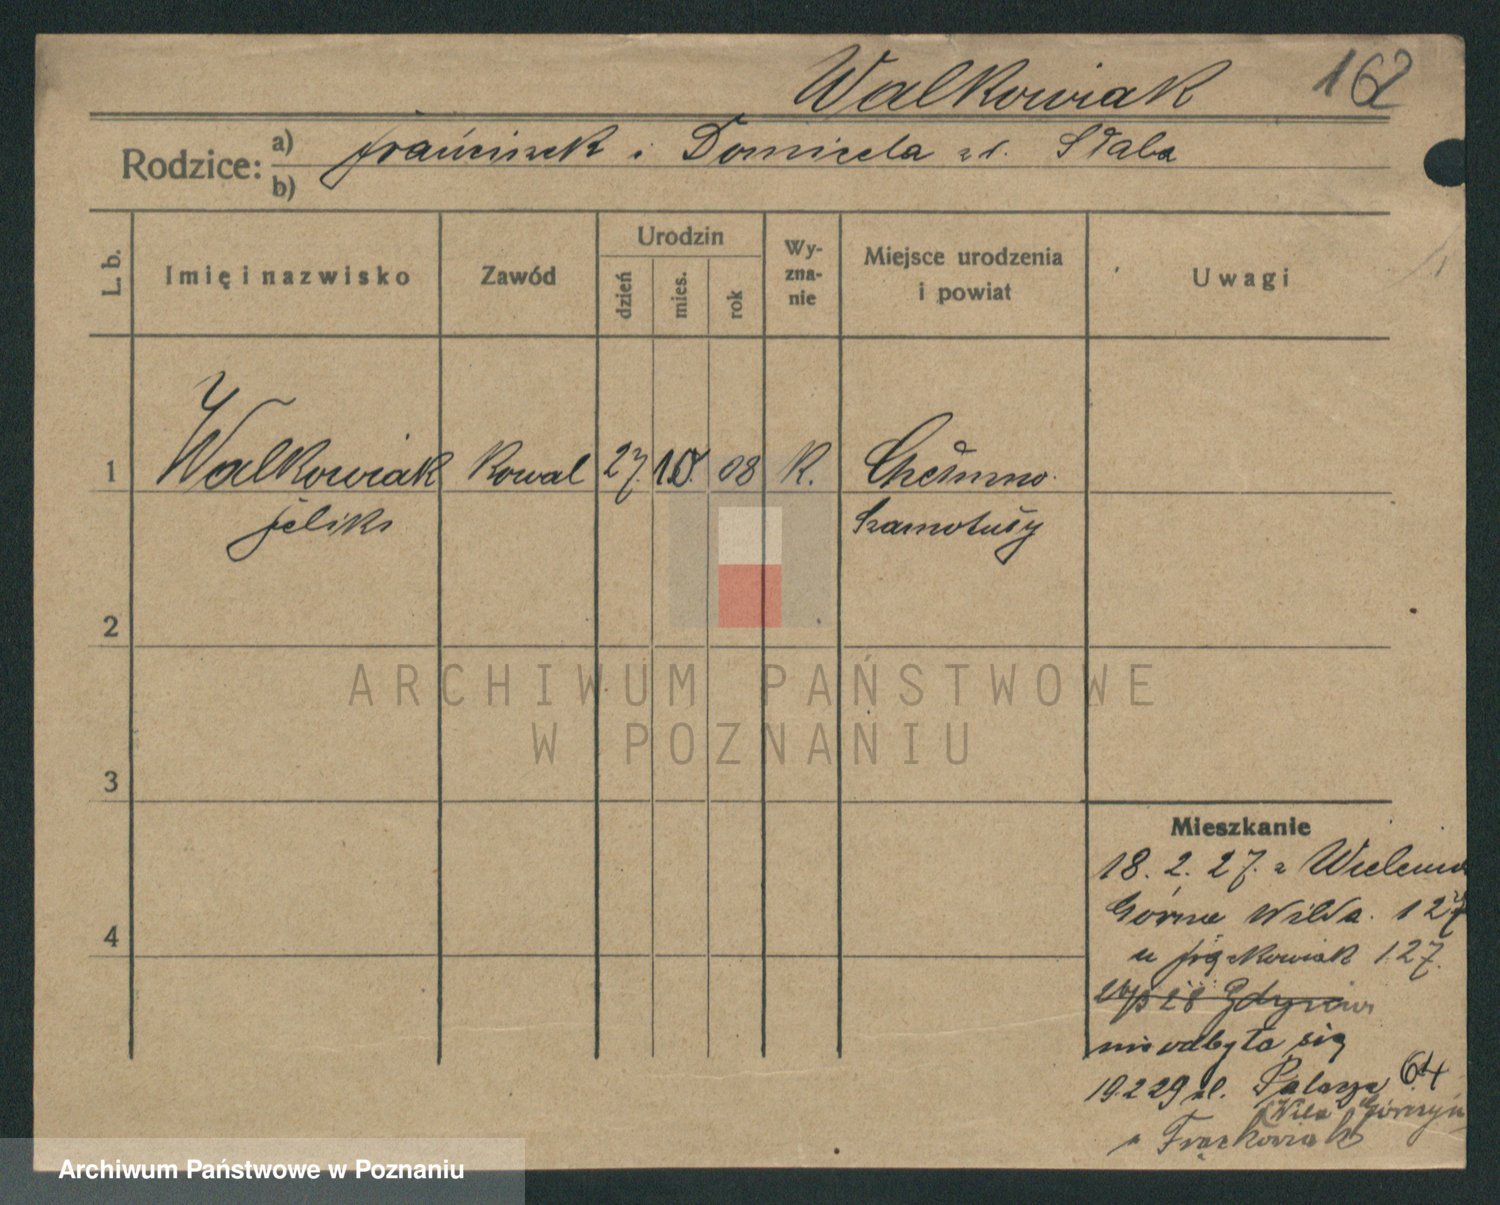 Walkowiak 162
Rodzice: a) Franciszek i Domicela zd. Słaba
b)
L. b. Imię i nazwisko Zawód Urodzin dzień mies. rok Wy-zna-nie Miejsce urodzenia i powiat Uwagi
1 Walkowiak Kowal 27. 10. 08 K. Chełmno.
Feliks Szamotuły
2
ARCHIWUM PAŃSTWOWE
W POZNANIU
3
Mieszkanie
18. 2. 27. z
Górna Wilda. 127
4
u Frąckowiak 127.
28 Gdynia
nie odbyła się
19.2.29 ul. Palacza 64
u Frąckowiak
Archiwum Państwowe w Poznaniu